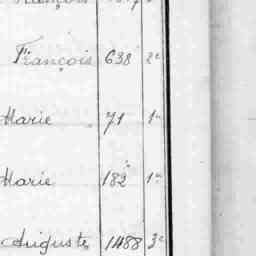 François 638 2e
Marie 71 1er
Marie 182 1er
Auguste 1488 3e